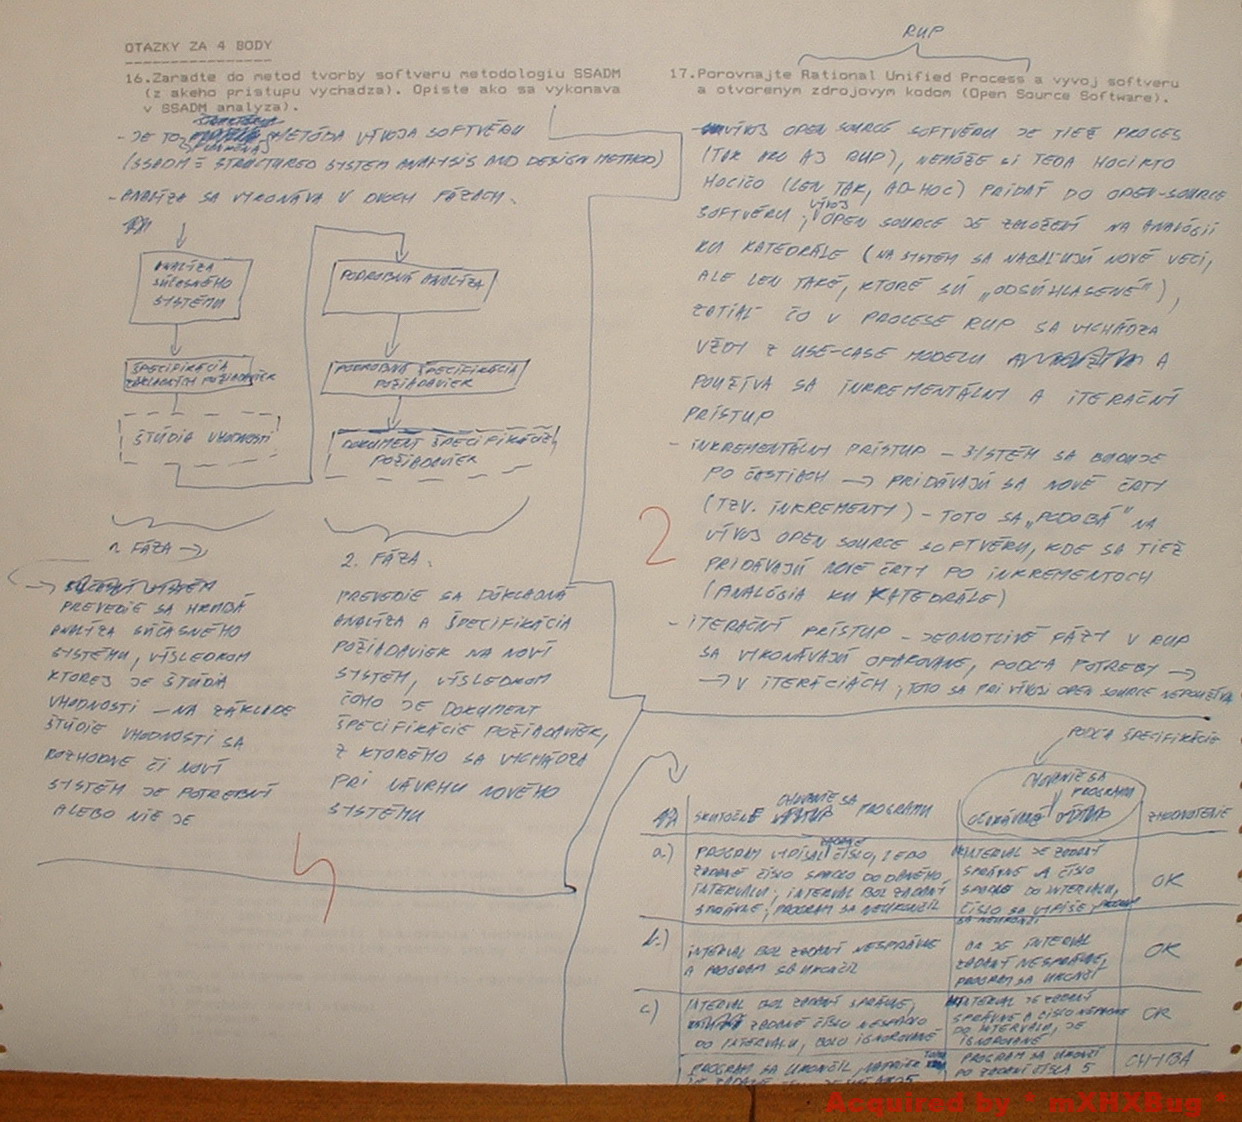 OTAZKY ZA 4 BODY
16.Zaradte do metod tvorby softveru metodologiu SSADM
(z akeho pristupu vychadza). Opiste ako sa vykonava
v SSADM analyza).
- JE TO METÓDA VÝVOJA SOFTVÉRU
(SSADM = STRUCTURED SYSTEM ANALYSIS AND DESIGN METHOD)
- ANALÝZA SA VYKONÁVA V DVOCH FÁZACH.
ANALÝZA
SÚČASNÉHO
SYSTÉMU
ŠPECIFIKÁCIA
ZÁKLADNÝCH POŽIADAVIEK
ŠTÚDIA VHODNOSTI
PODROBNÁ ANALÝZA
PODROBNÁ ŠPECIFIKÁCIA
POŽIADAVIEK
DOKUMENT ŠPECIFIKÁCIE
POŽIADAVIEK
1. FÁZA →
→
PREVEDIE SA HRUBÁ
ANALÝZA SÚČASNÉHO
SYSTÉMU, VÝSLEDKOM
KTOREJ JE ŠTÚDIA
VHODNOSTI — NA ZÁKLADE
ŠTÚDIE VHODNOSTI SA
ROZHODNE ČI NOVÝ
SYSTÉM JE POTREBNÝ
ALEBO NIE JE
2. FÁZA.
PREVEDIE SA DÔKLADNÁ
ANALÝZA A ŠPECIFIKÁCIA
POŽIADAVIEK NA NOVÝ
SYSTÉM, VÝSLEDKOM
ČOHO JE DOKUMENT
ŠPECIFIKÁCIE POŽIADAVIEK,
Z KTORÉHO SA VYCHÁDZA
PRI NÁVRHU NOVÉHO
SYSTÉMU
4
RUP
17.Porovnajte Rational Unified Process a vyvoj softveru
a otvorenym zdrojovym kodom (Open Source Software).
VÝVOJ OPEN SOURCE SOFTVÉRU JE TIEŽ PROCES
(TAK AKO AJ RUP), NEMÔŽE SI TEDA HOCIKTO
HOCIČO (LEN TAK, AD-HOC) PRIDAŤ DO OPEN-SOURCE
SOFTVÉRU, VÝVOJ OPEN SOURCE JE ZALOŽENÝ NA ANALÓGII
KU KATEDRÁLE (NA SYSTÉM SA NABAĽUJÚ NOVÉ VECI,
ALE LEN TAKÉ, KTORÉ SÚ „ODSÚHLASENÉ"),
ZATIAĽ ČO V PROCESE RUP SA VYCHÁDZA
VŽDY Z USE-CASE MODELU A
POUŽÍVA SA INKREMENTÁLNY A ITERAČNÝ
PRÍSTUP
- INKREMENTÁLNY PRÍSTUP - SYSTÉM SA BUDUJE
PO ČASTIACH → PRIDÁVAJÚ SA NOVÉ ČRTY
(TZV. INKREMENTY) - TOTO SA „PODOBÁ" NA
VÝVOJ OPEN SOURCE SOFTVÉRU, KDE SA TIEŽ
PRIDÁVAJÚ NOVÉ ČRTY PO INKREMENTOCH
(ANALÓGIA KU KATEDRÁLE)
2
- ITERAČNÝ PRÍSTUP - JEDNOTLIVÉ FÁZY V RUP
SA VYKONÁVAJÚ OPAKOVANE, PODĽA POTREBY →
→ V ITERÁCIÁCH, TOTO SA PRI VÝVOJI OPEN SOURCE NEPOUŽÍVA
PODĽA ŠPECIFIKÁCIE
SKUTOČNÉ CHOVANIE SA PROGRAMU
OČAKÁVANÉ CHOVANIE SA PROGRAMU
ZHODNOTENIE
a.)
PROGRAM VYPÍSAL ZADANÉ ČÍSLO, LEBO
ZADANÉ ČÍSLO SPADLO DO DANÉHO
INTERVALU; INTERVAL BOL ZADANÝ
SPRÁVNE, PROGRAM SA NEUKONČIL
INTERVAL JE ZADANÝ
SPRÁVNE A ČÍSLO
SPADLE DO INTERVALU,
ČÍSLO SA VYPÍŠE, PROGRAM
SA NEUKONČÍ
OK
b.)
INTERVAL BOL ZADANÝ NESPRÁVNE
A PROGRAM SA UKONČIL
AK JE INTERVAL
ZADANÝ NESPRÁVNE,
PROGRAM SA UKONČÍ
OK
c.)
INTERVAL BOL ZADANÝ SPRÁVNE,
ZADANÉ ČÍSLO NESPADLO
DO INTERVALU, BOLO IGNOROVANÉ
INTERVAL JE ZADANÝ
SPRÁVNE A ČÍSLO NEPADNE
DO INTERVALU, JE
IGNOROVANÉ
OK
PROGRAM SA UKONČIL, NAPRIEK TOMU
PROGRAM SA UKONČÍ
PO ZADANÍ ČÍSLA 5
CHYBA
Acquired by * mXHXBug *